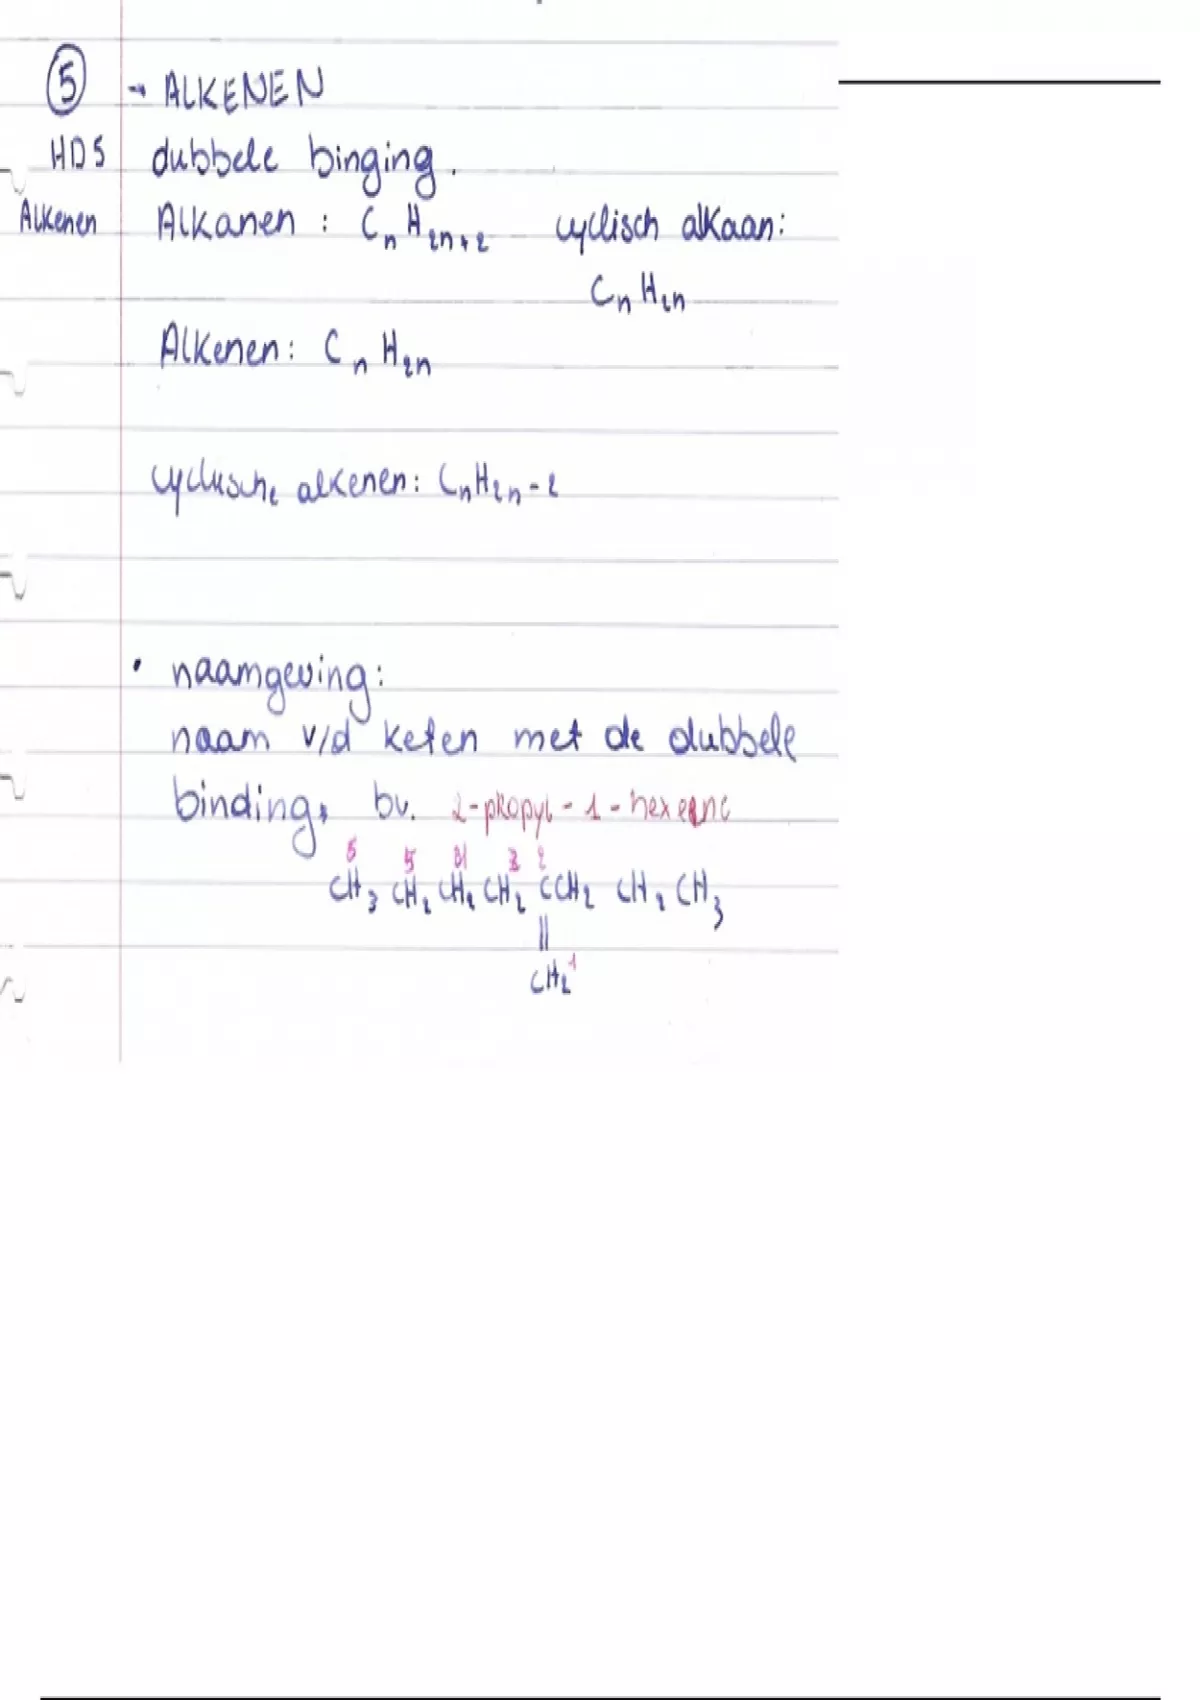 ⑤ → ALKENEN
HDS dubbele binging.
Alkenen Alkanen : CnH2n+2 cyclisch alkaan:
CnH2n
Alkenen: CnH2n
cyclische alkenen: CnH2n-2
• naamgeving:
naam v/d keten met de dubbele
binding, bv. 2-propyl-1-hexeen
6 5 4 3 2
CH3 CH2 CH2 CH2 CCH2 CH2 CH3
||
CH2 1